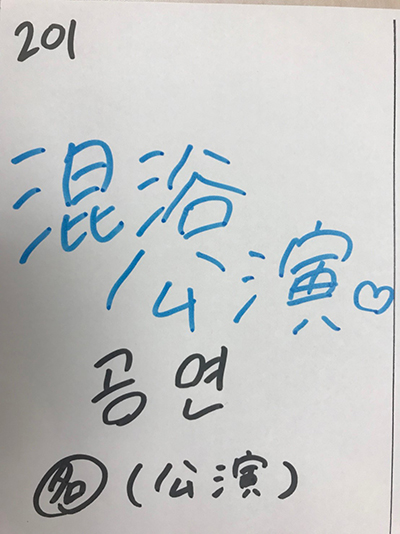 201
混浴
公演♡
공연
名 (公演)